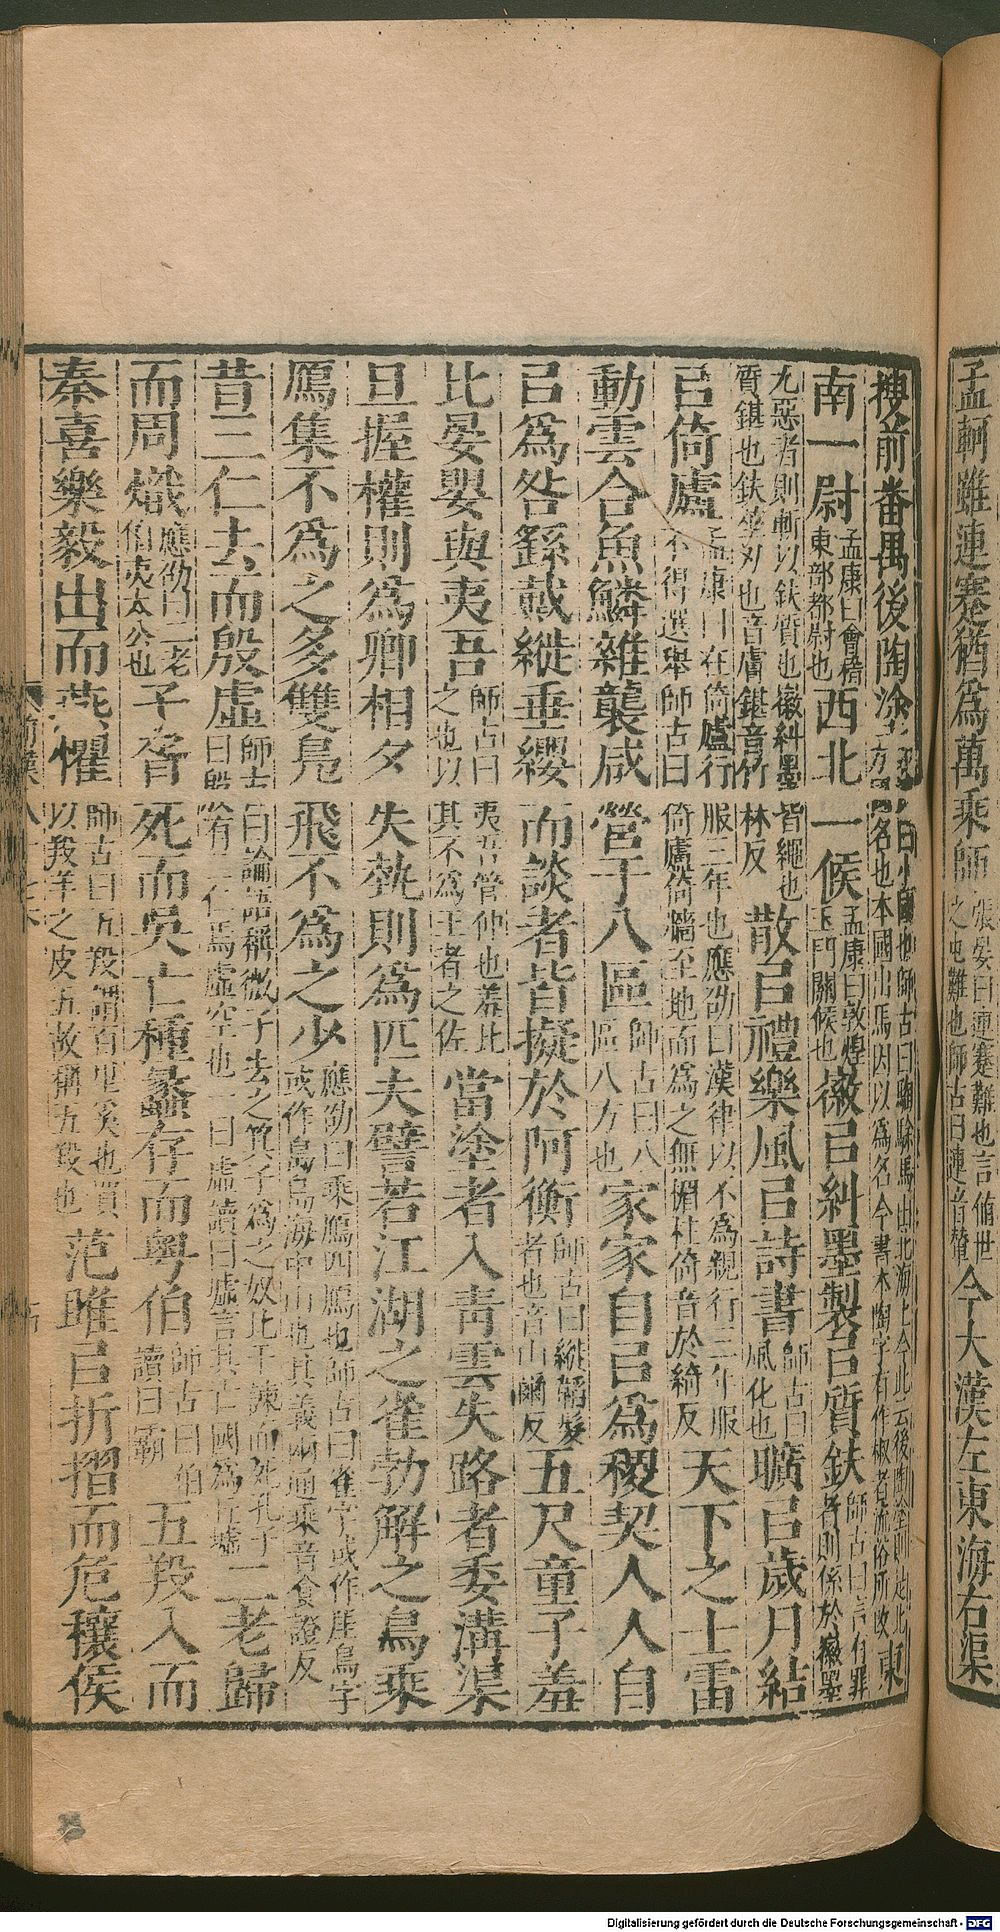 孟軻雖連蹇猶爲萬乘師張晏曰連蹇難也言值世之屯難也師古曰連音輦今大漢左東海右渠
搜前番禺後陶塗小國也師古曰騊駼馬出北海上今此云後陶塗則是北方國名也本國出馬因以爲名今書本陶字有作椒者流俗所改東
南一尉孟康曰會稽東部都尉也西北一候孟康曰敦煌玉門關候也徽㠯糾墨製㠯質鈇師古曰言有罪者則係於徽墨
尤惡者則斬以鈇質也徽糾墨皆繩也質鍖也鈇莝刃也音膚鍖音竹林反散㠯禮樂風㠯詩書師古曰風化也曠㠯歲月結
㠯倚廬孟康曰在倚廬行服三年也應劭曰漢律以不爲親行三年服不得選舉師古曰倚廬倚牆至地而爲之無楣柱倚音於綺反天下之士雷
動雲合魚鱗雜襲咸營于八區師古曰八區八方也家家自㠯爲稷契人人自
㠯爲咎繇戴縰垂纓而談者皆擬於阿衡師古曰縰韜髮者也音山爾反五尺童子羞
比晏嬰與夷吾師古曰夷吾管仲也羞比之也以其不爲王者之佐當塗者入青雲失路者委溝渠
旦握權則爲卿相夕失埶則爲匹夫譬若江湖之雀勃解之鳥乘
鴈集不爲之多雙鳧飛不爲之少應劭曰乘鴈四鴈也師古曰雀字或作崖鳥字或作島島海中山也其義兩通乘音食證反
昔三仁去而殷虛師古曰論語稱微子去之箕子爲之奴比干諫而死孔子曰殷有三仁焉虛空也一曰虛讀曰墟言其亡國爲丘墟二老歸
而周熾應劭曰二老伯夷太公也子胥死而吳亡種蠡存而粵伯師古曰伯讀曰霸五羖入而
秦喜樂毅出而燕懼師古曰五羖謂百里奚也買以羖羊之皮五故稱五羖也范雎㠯折摺而危穰侯
Digitalisierung gefördert durch die Deutsche Forschungsgemeinschaft - DFG